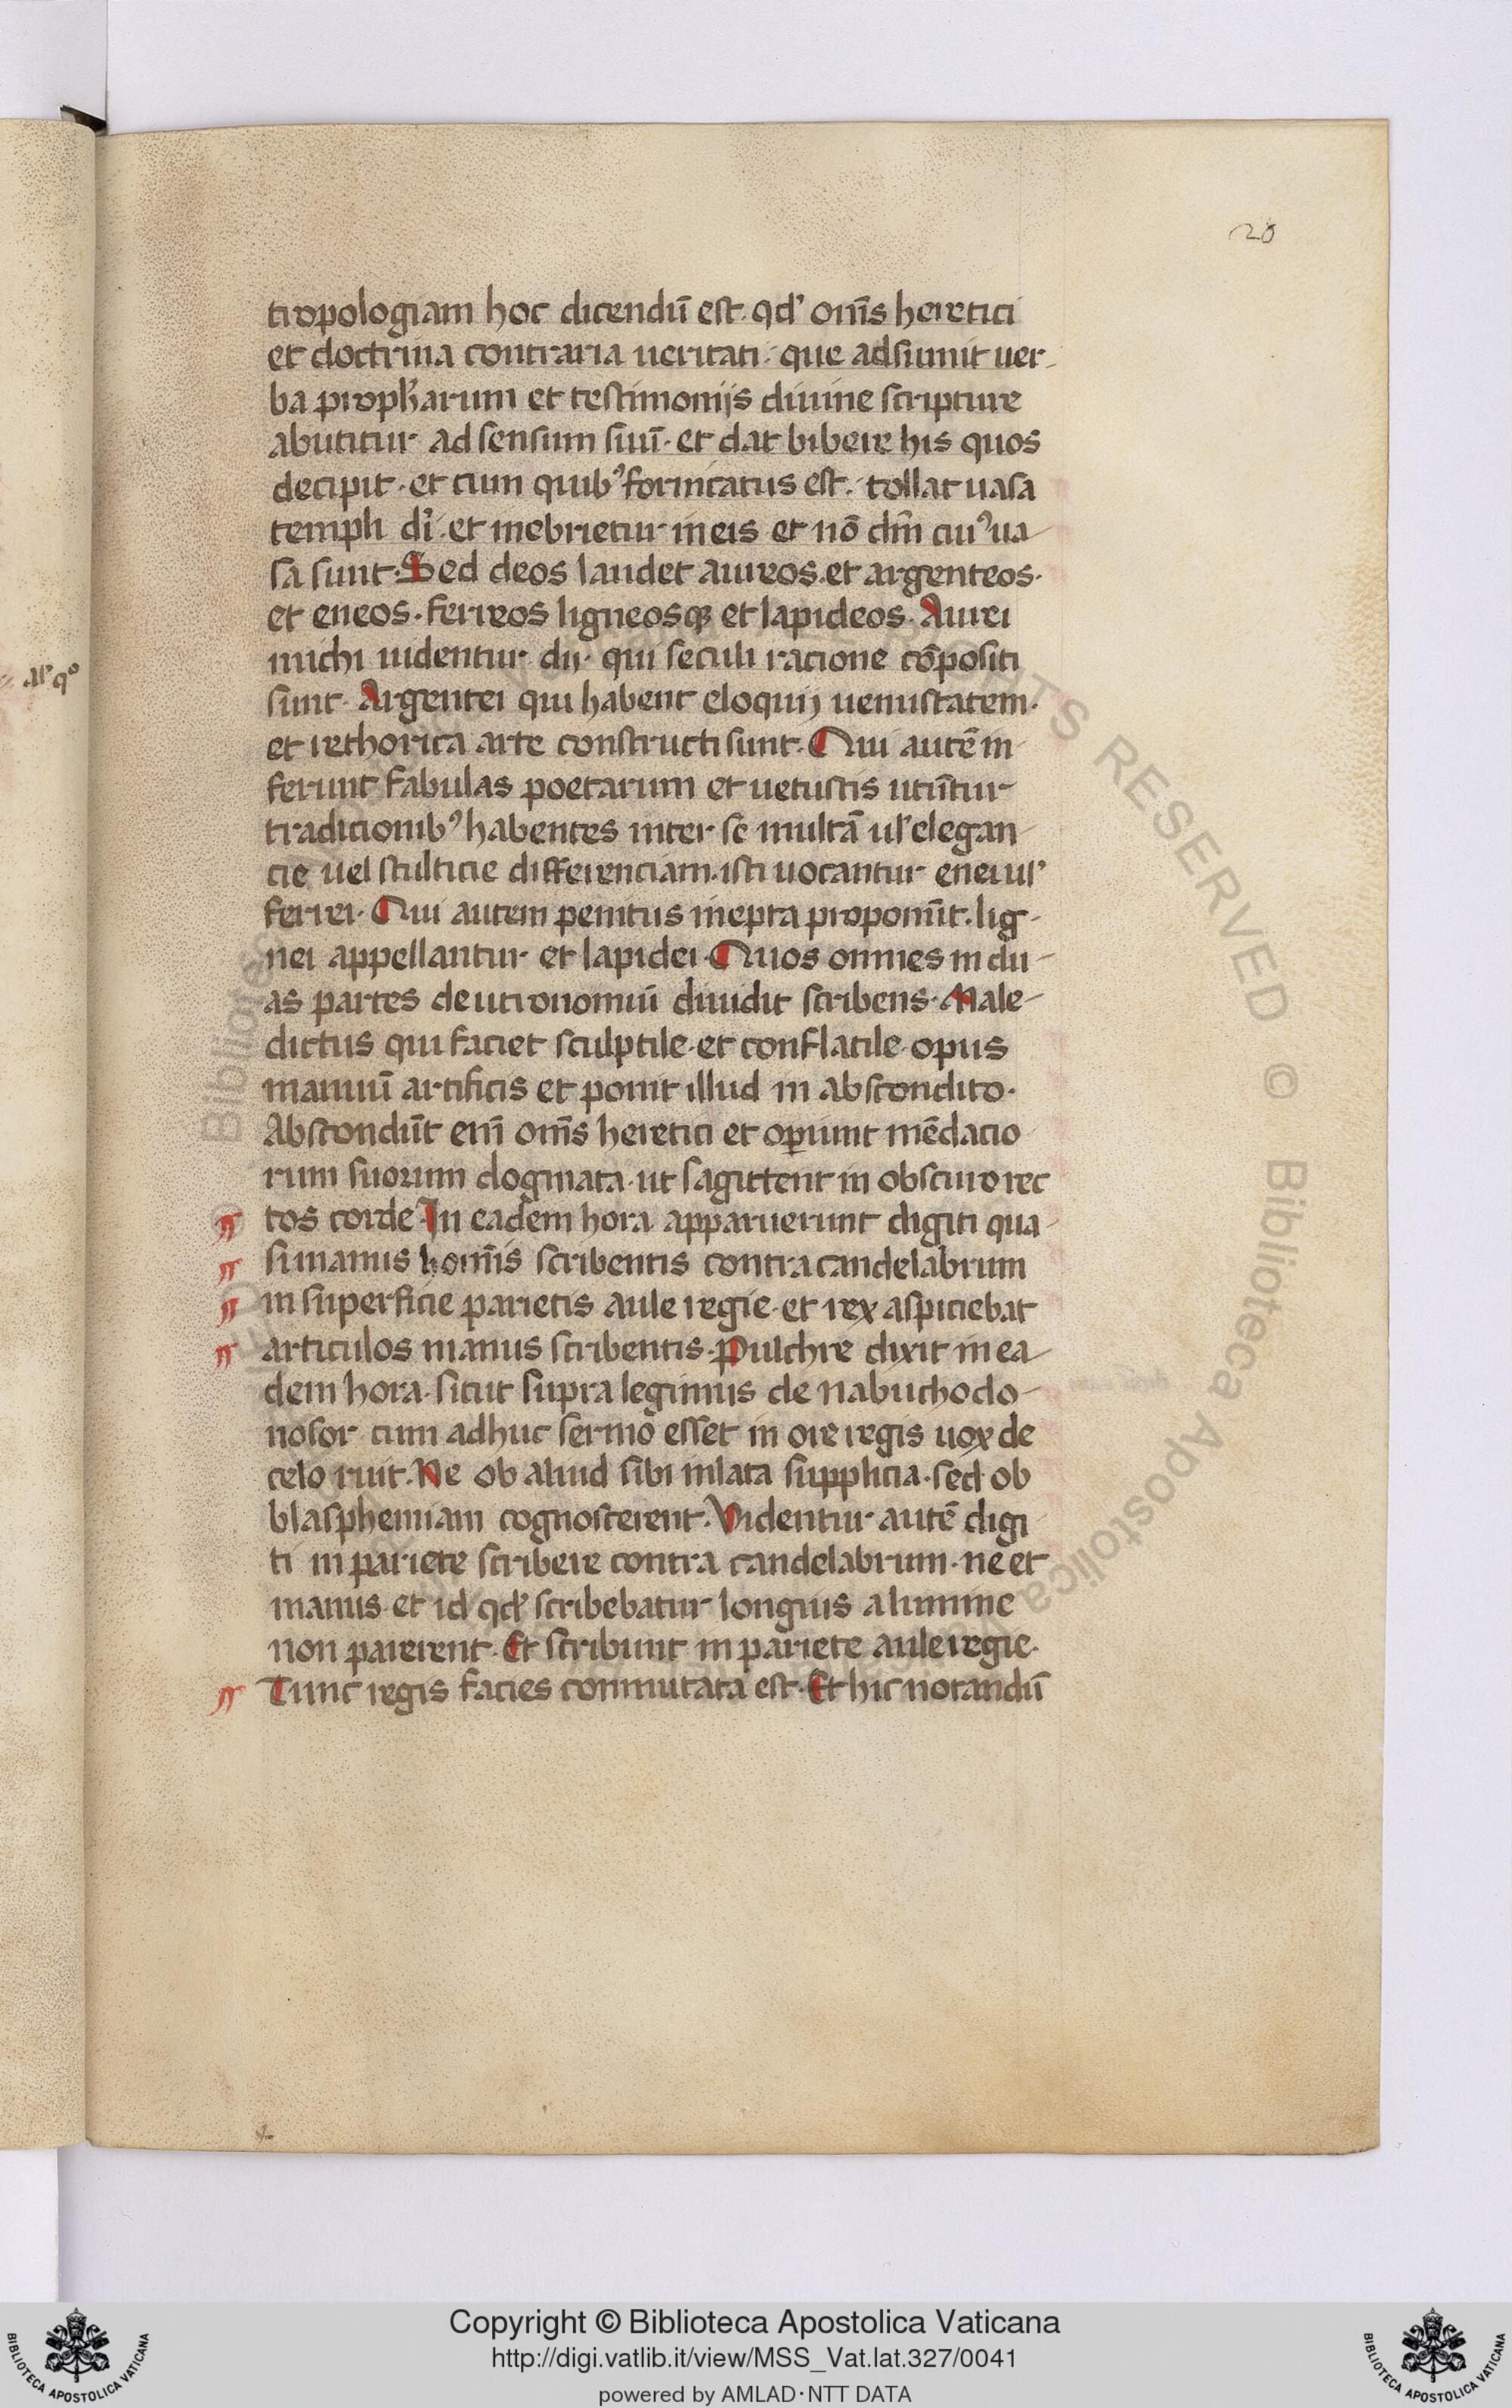 20
tropologiam hoc dicendū est. qd' om̄s heretici
et doctrina contraria ueritati. que adsumit uer-
ba proph̄arum et testimonijs diuine scripture
abutitur ad sensum suū. et dat bibere his quos
decipit. et cum quib' fornicatus est. tollat uasa
templi dī. et inebrietur in eis et nō dm̄ cui' ua
sa sunt. Sed deos laudet aureos. et argenteos.
et eneos. ferreos ligneosq; et lapideos. Aurei
michi uidentur dij. qui seculi racione cōpositi
al' qo
sunt. Argentei qui habent eloquij uenustatem.
et rethorica arte constructi sunt. Qui autē in
ferunt fabulas poetarum et uetustis utūtur
tradicionib' habentes inter se multā ul' elegan
cie uel stulticie differenciam. isti uocantur enei ul'
ferrei. Qui autem penitus inepta proponūt. lig-
nei appellantur et lapidei. Quos omnes in du-
as partes deutronomiū diuidit scribens. Male-
dictus qui faciet sculptile. et conflatile. opus
manuū artificis et ponit illud in abscondito.
Abscondūt enī om̄s heretici et operiunt mēdacio
rum suorum dogmata. ut sagittent in obscuro rec
tos corde. In eadem hora apparuerunt digiti qua
si manus homīs scribentis contra candelabrum
in superficie parietis aule regie. et rex aspiciebat
articulos manus scribentis. Pulchre dixit in ea
dem hora. sicut supra legimus de nabuchodo-
nosor cum adhuc sermo esset in ore regis uox de
celo ruit. Ne ob aliud sibi inlata supplicia. sed ob
blasphemiam cognoscerent. Videntur autē digi
ti in pariete scribere contra candelabrum. ne et
manus. et id qd' scribebatur longius a lumine
non parerent. Et scribunt in pariete aule regie.
Tunc regis facies conmutata est. Et hic notandū
Copyright © Biblioteca Apostolica Vaticana
http://digi.vatlib.it/view/MSS_Vat.lat.327/0041
powered by AMLAD·NTT DATA
BIBLIOTECA APOSTOLICA VATICANA
BIBLIOTECA APOSTOLICA VATICANA